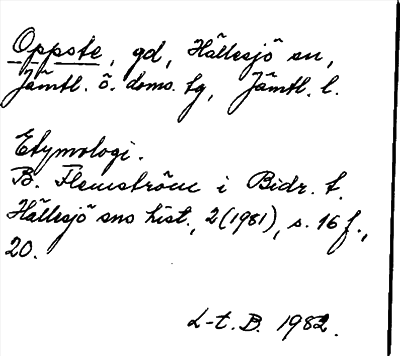 Oppste, gd, Hällesjö sn,
Jämtl. ö. doms. tg, Jämtl. l.
Etymologi.
B. Flemström i Bidr. t.
Hällesjö sns hist., 2(1981), s. 16 f.,
20.
L-t. B. 1982.